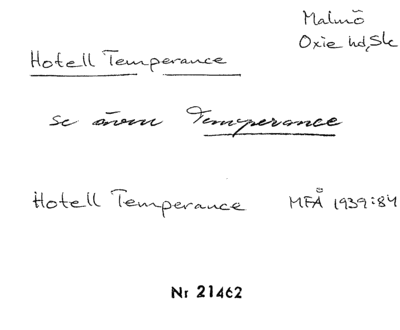 Malmö
Oxie hd, Sk
Hotell Temperance
se även Temperance
Hotell Temperance MFÅ 1939:84
Nr 21462